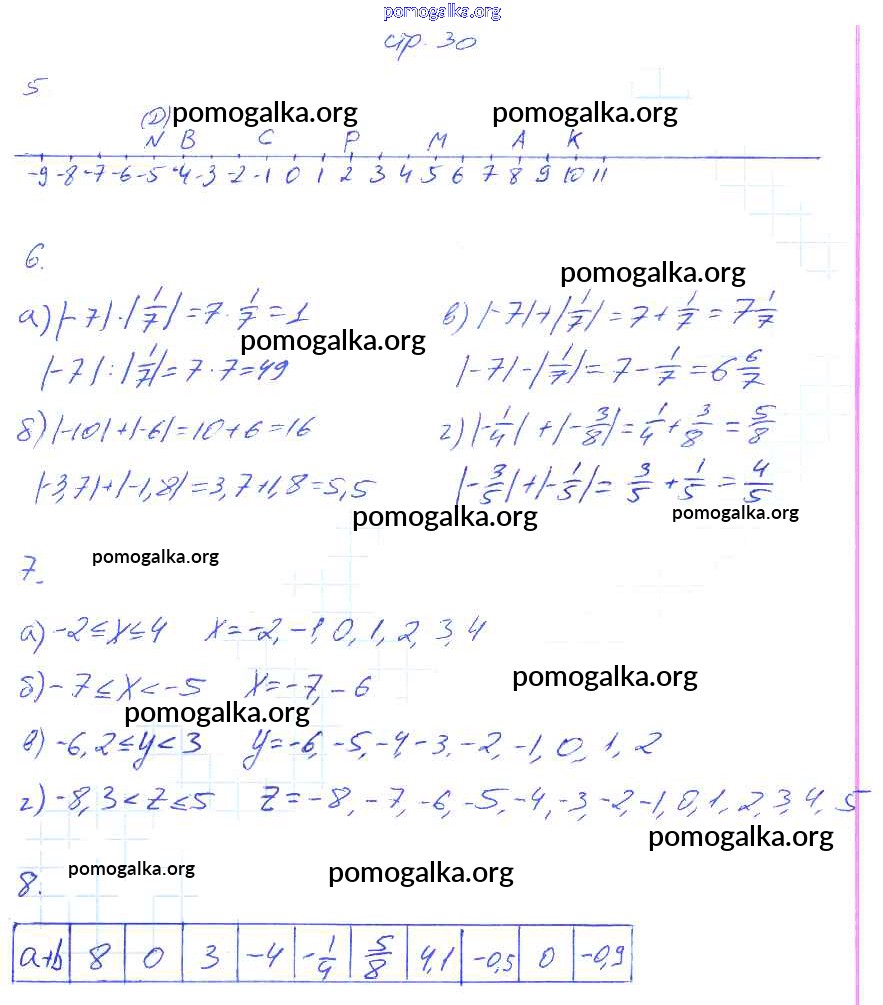 pomogalka.org
стр. 30
5
(D) pomogalka.org pomogalka.org
N B C P M A K
-9 -8 -7 -6 -5 -4 -3 -2 -1 0 1 2 3 4 5 6 7 8 9 10 11
6.
pomogalka.org
а) |-7|·|1/7| = 7·1/7 = 1 в) |-7|+|1/7| = 7+1/7 = 7 1/7
pomogalka.org
|-7|:|1/7| = 7·7=49 |-7|-|1/7| = 7-1/7 = 6 6/7
б) |-10|+|-6|=10+6=16 г) |-1/4|+|-3/8| = 1/4+3/8 = 5/8
|-3,7|+|-1,8|=3,7+1,8=5,5 |-3/5|+|-1/5| = 3/5+1/5 = 4/5
pomogalka.org pomogalka.org
7. pomogalka.org
а) -2≤x≤4 x=-2, -1, 0, 1, 2, 3, 4
б) -7≤x<-5 x=-7, -6
pomogalka.org
pomogalka.org
в) -6,2≤y<3 y=-6, -5, -4, -3, -2, -1, 0, 1, 2
г) -8,3<z≤5 z=-8, -7, -6, -5, -4, -3, -2, -1, 0, 1, 2, 3, 4, 5
pomogalka.org
8. pomogalka.org pomogalka.org
a+b 8 0 3 -4 -1/4 5/8 4,1 -0,5 0 -0,9